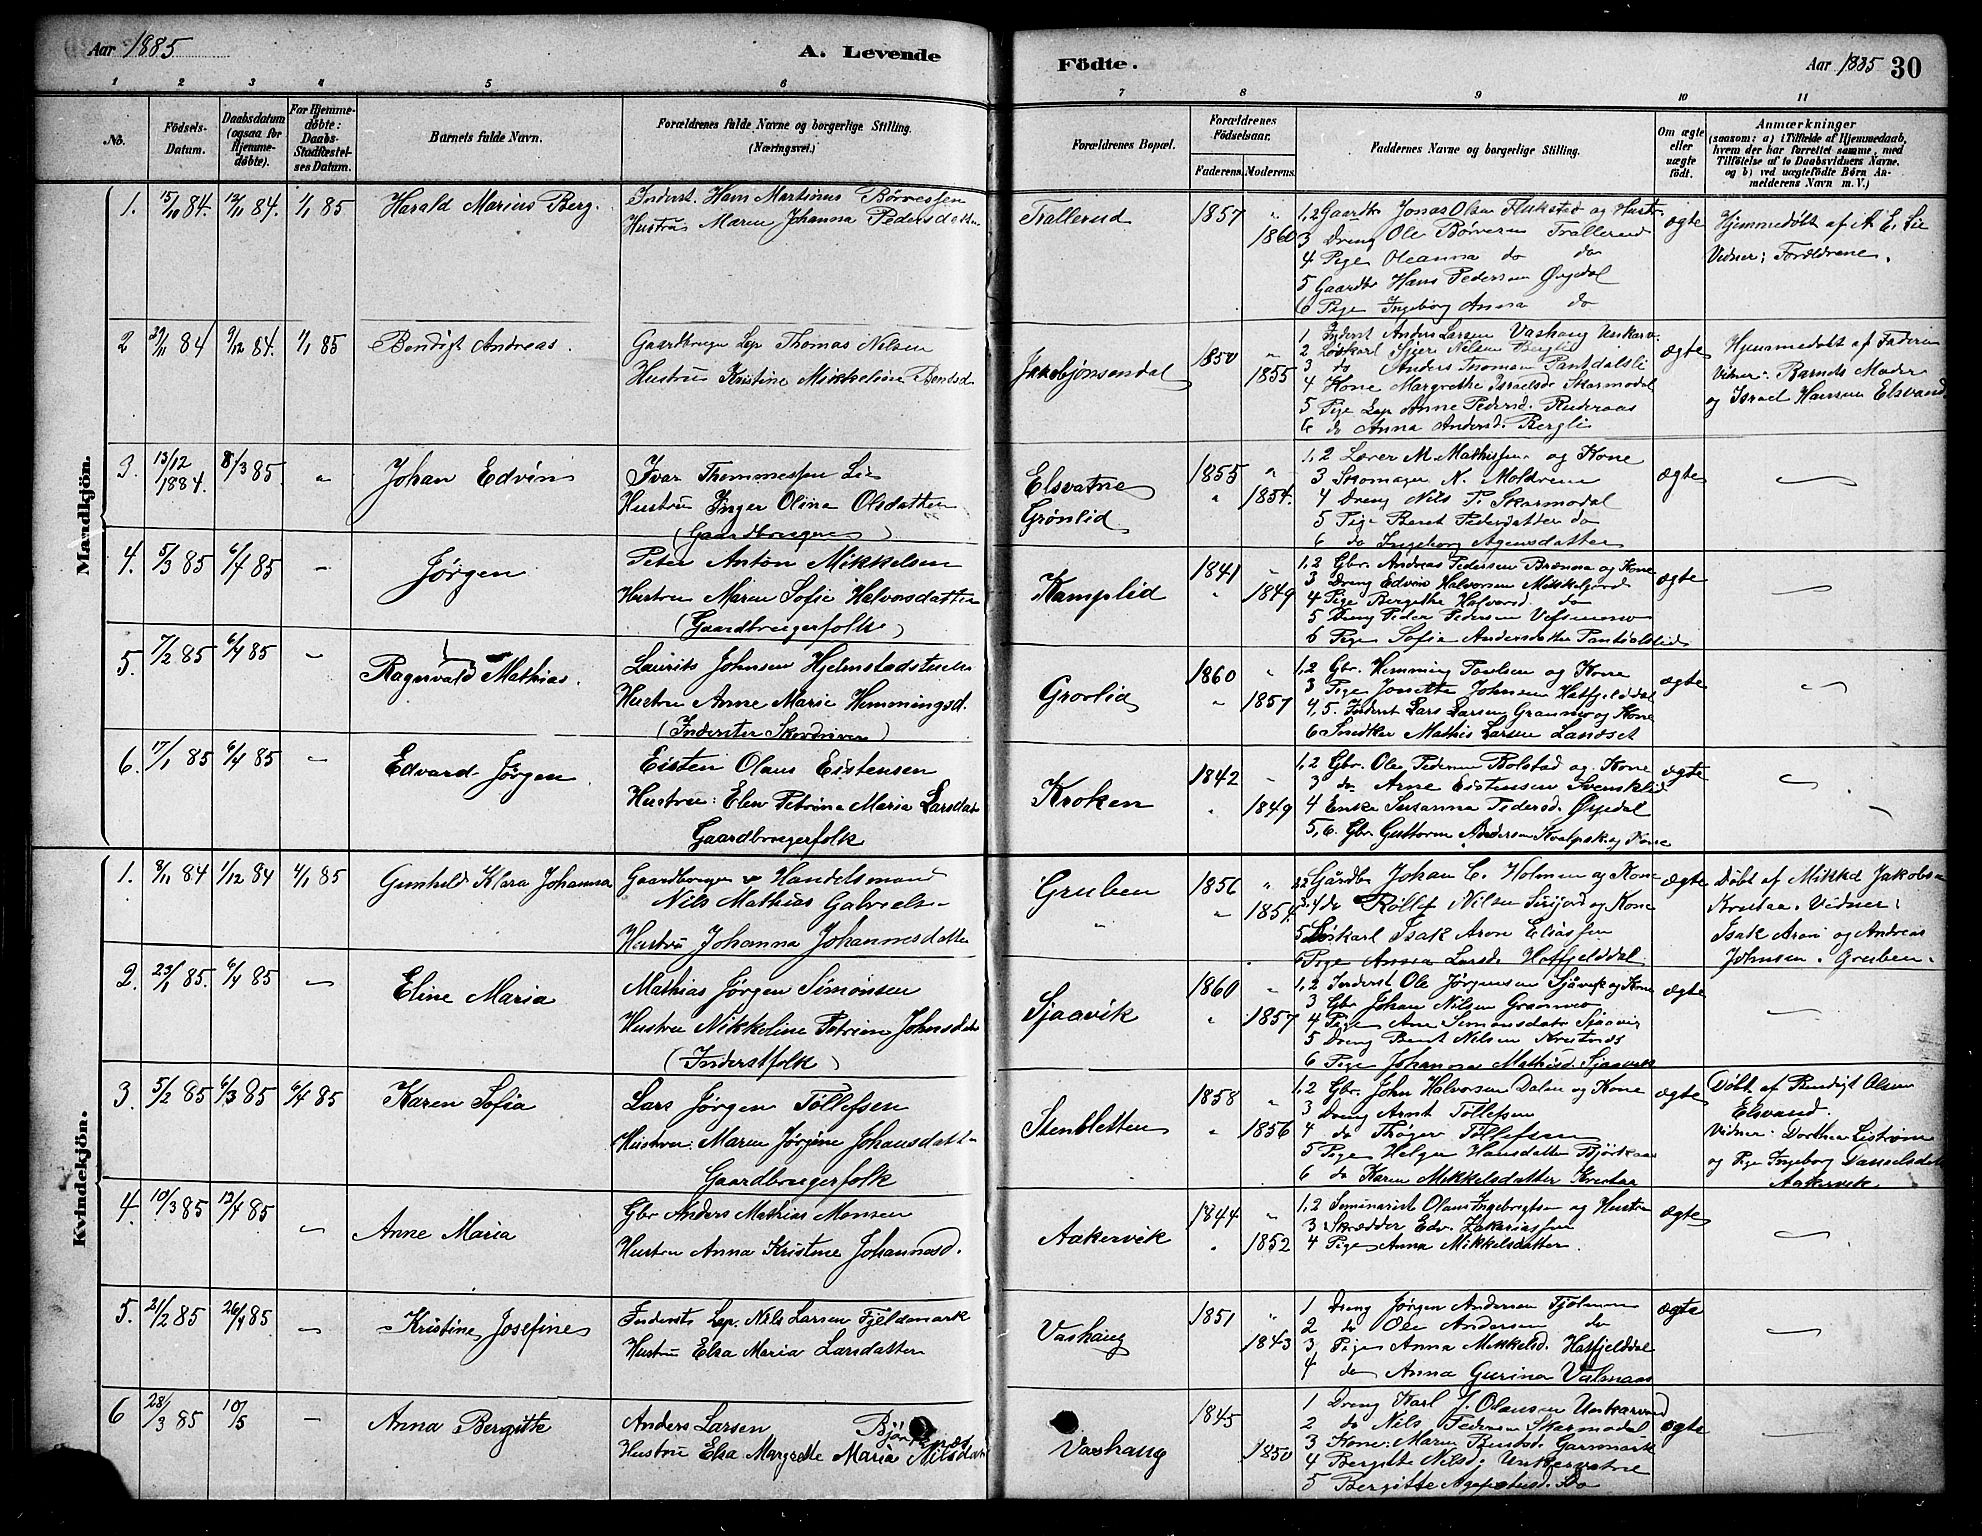 Aar 1885
A. Levende
Födte.
Aar 1885
30
1 2 3 4 5 6 7 8 9 10 11
No.
Födsels-Datum.
Daabsdatum (ogsaa for Hjemme-døbte).
For Hjemme-døbte: Daabs-Stadfæstelses Datum.
Barnets fulde Navn.
Forældrenes fulde Navne og borgerlige Stilling. (Næringsvei.)
Forældrenes Bopæl.
Forældrenes Fødselsaar.
Faderens. Moderens.
Faddernes Navne og borgerlige Stilling.
Om ægte eller uægte födt.
Anmærkninger
(saasom: a) i Tilfælde af Hjemmedaab, hvem der har forrettet samme, med Tilføielse af to Daabsvidners Navne. og b) ved uægtefødte Børn Anmelderens Navn m. V.)
Mandkjön.
1. 15/10 84. 12/11 84. 1/1 85 Harald Marius Berg.
Inderst. Hans Martinus Børresen
Hustru Maren Johanna Pedersdatter
Trallerud 1857 1860
1,2 Gaardbr Jonas Olsen Flukstad og Hustr.
3 Dreng Ole Børresen Trallerud
4 Pige Oleanna do do
5 Gaardbr Hans Pedersen Øxedal
6 Pige Ingeborg Anna do
ægte
Hjemmedøbt af A. E. Lie
Vidner: Forældrene.
2 29/11 84 9/12 84. 1/1 85 Bendigt Andreas.
Gaardbruger Lap Thomas Nilsen
Hustru Kristine Mikkeline Bendsd.
Jakobjønsendal 1850 1855
1 Inderst Anders Larsen Vashaug Unkarv.
2 Løskarl Sjger Nilsen Bergli
3 do Anders Thomsen Pantdalsli
4 Kone Margrethe Israelsd. Skarmodal
5 Pige Lap Anne Pedersd. Ruderaas
6 do Anna Andersd. Bergli
ægte
Hjemmedøbt af Faderen
Vidner: Barnets Moder
og Israel Hansen Elsvand
3. 13/12 1884. 8/3 85. " Johan Edvin
Ivar Thommessen Li
Hustru Inger Olina Olsdatter
(Gaardbrugere)
Elsvatne
Grønlid
1855 1854.
1,2 Lærer M. Mathissen og Kone
3 Skomager N. Moldrem
4 Dreng Nils P. Skarmodal
5 Pige Beret Pedersdatter do
6 do Ingeborg Agensdatter
ægte
4. 5/3 85 6/4 85 - Jørgen
Peter Anton Mikkelsen
Hustru Maren Sofie Halvorsdatter
(Gaardbrugerfolk)
Kamplid 1841 1849
1,2 Gbr. Andreas Pedersen Brænna og Kone
3 Dreng Edvin Halvorsen Mikkeljord
4 Pige Bergithe Halvorsd. do
5 Dreng Peder Pedersen Vefsenmo
6 Pige Sofie Andersdatter Pantdalslid
ægte
5. 7/2 85 6/4 85 - Ragnvald Mathias.
Laurits Johnsen Hjelmstadstuen
Hustru Anne Marie Hemmingsd.
(Inderster Skovdriver)
Grovlid 1860 1857
1,2 Gbr. Hemming Paulsen og Kone
3 Pige Jonette Johnsen Hatfjelddal
4,5. Inderst Lars Larsen Granmo og Kone
6 Snedker Mathis Larsen Landset
ægte
6. 17/1 85 6/4 85 - Edvard Jørgen
Eisten Olaus Eistensen
Hustru: Elen Petrina Maria Larsdat.
Gaardbrugerfolk
Kroken 1842 1849
1,2 Gbr. Ole Pedersen Rolstad og Kone
3 do Arne Eistensen Svensklid
4 Enke Susanna Pedersd. Øxedal
5,6. Gbr. Guttorm Andersen Kvalpsk. og Kone
ægte
Kvindekjön.
1. 8/11 84 1/12 84 4/1 85 Gunhild Klara Johanna
Gaardbruger & Handelsmand
Nils Mathias Gabriels-
Hustru Johanna Johannesdatter
Gruben 1856 1854.
1,2 Gårdbr Johan C. Holmen og Kone
3,4 do Rollef Nilsen Sirijord og Kone
5 Løskarl Isak Aron Eliassen
6 Pige Anna Larsd. Hatfjelddal
ægte
Døbt af Mikkel Jakobsen
Krutaa. Vidner:
Isak Aron og Andreas
Johnsen. Gruben.
2. 23/1 85. 6/4 85 - Eline Maria
Mathias Jørgen Simonsen
Hustru Nikkoline Petrine Johnsdatt
(Inderstfolk)
Sjaavik 1860 1857
1,2 Inderst Ole Jørgensen Sjåvik og Kone
3 Gbr Johan Nilsen Granmo
4 Pige Ane Simonsdatr Sjaavig
5 Dreng Bernt Nilsen Kristnes
6 Pige Johanna Mathisd. Sjaavik
ægte
3. 5/2 85 6/3 85 6/4 85 Karen Sofia
Lars Jørgen Tøllefsen
Hustru: Maren Jørgine Johansdatt-
Gaardbrugerfolk
Stenbletten 1858 1856
1,2 Gbr. John Halvorsen Dalen og Kone
3 Dreng Arnt Tøllefsen
4 do Thøger Tøllefsen
5 Pige Helga Hansdatter Bjørkaas
6 do Karen Mikkelsdatter Krutaa
ægte
Døbt af Bendigt Olsen
Elsvand.
Vidner: Dorthea Liström
og Pige Ingeborg Danielsdatt
Aakervik
4. 10/3 85 12/4 85 - Anne Maria
Gbr Anders Mathias Monsen
Hustru Anna Kristine Johannesd.
Aakervik 1844 1852
1,2 Seminarist Olaus Ingebrigtsen og Hustru
3 Skrædder Edv. Zakariassen
4 Pige Anna Mikkelsdatter.
ægte
5. 21/2 85 26/4 85 - Kristine Josefine
Inderst Lap. Nils Larsen Fjeldmark
Hustru Elsa Maria Larsdatter
Vashaug 1851 1843
1 Dreng Jørgen Andersen Fjelmo
2 do Ole Andersen do
3 Pige Anna Mikkelsd. Hatfjelddal
4 do Anna Gurina Valmaas
ægte
6 28/3 85 10/5 - Anna Bergitte
Anders Larsen
Hustru Elsa Margrette Maria Nilsdatt
Vashaug 1845 1850
1 Dreng Karl J. Olausen Unkarvand
2 do Nils Pedersen Skarmodal
3 Kone: Maren Bendsd. Garnmark
4 Bergite Nilsd. Unkervatne
5 Bergitte Agathusd. Do
ægte